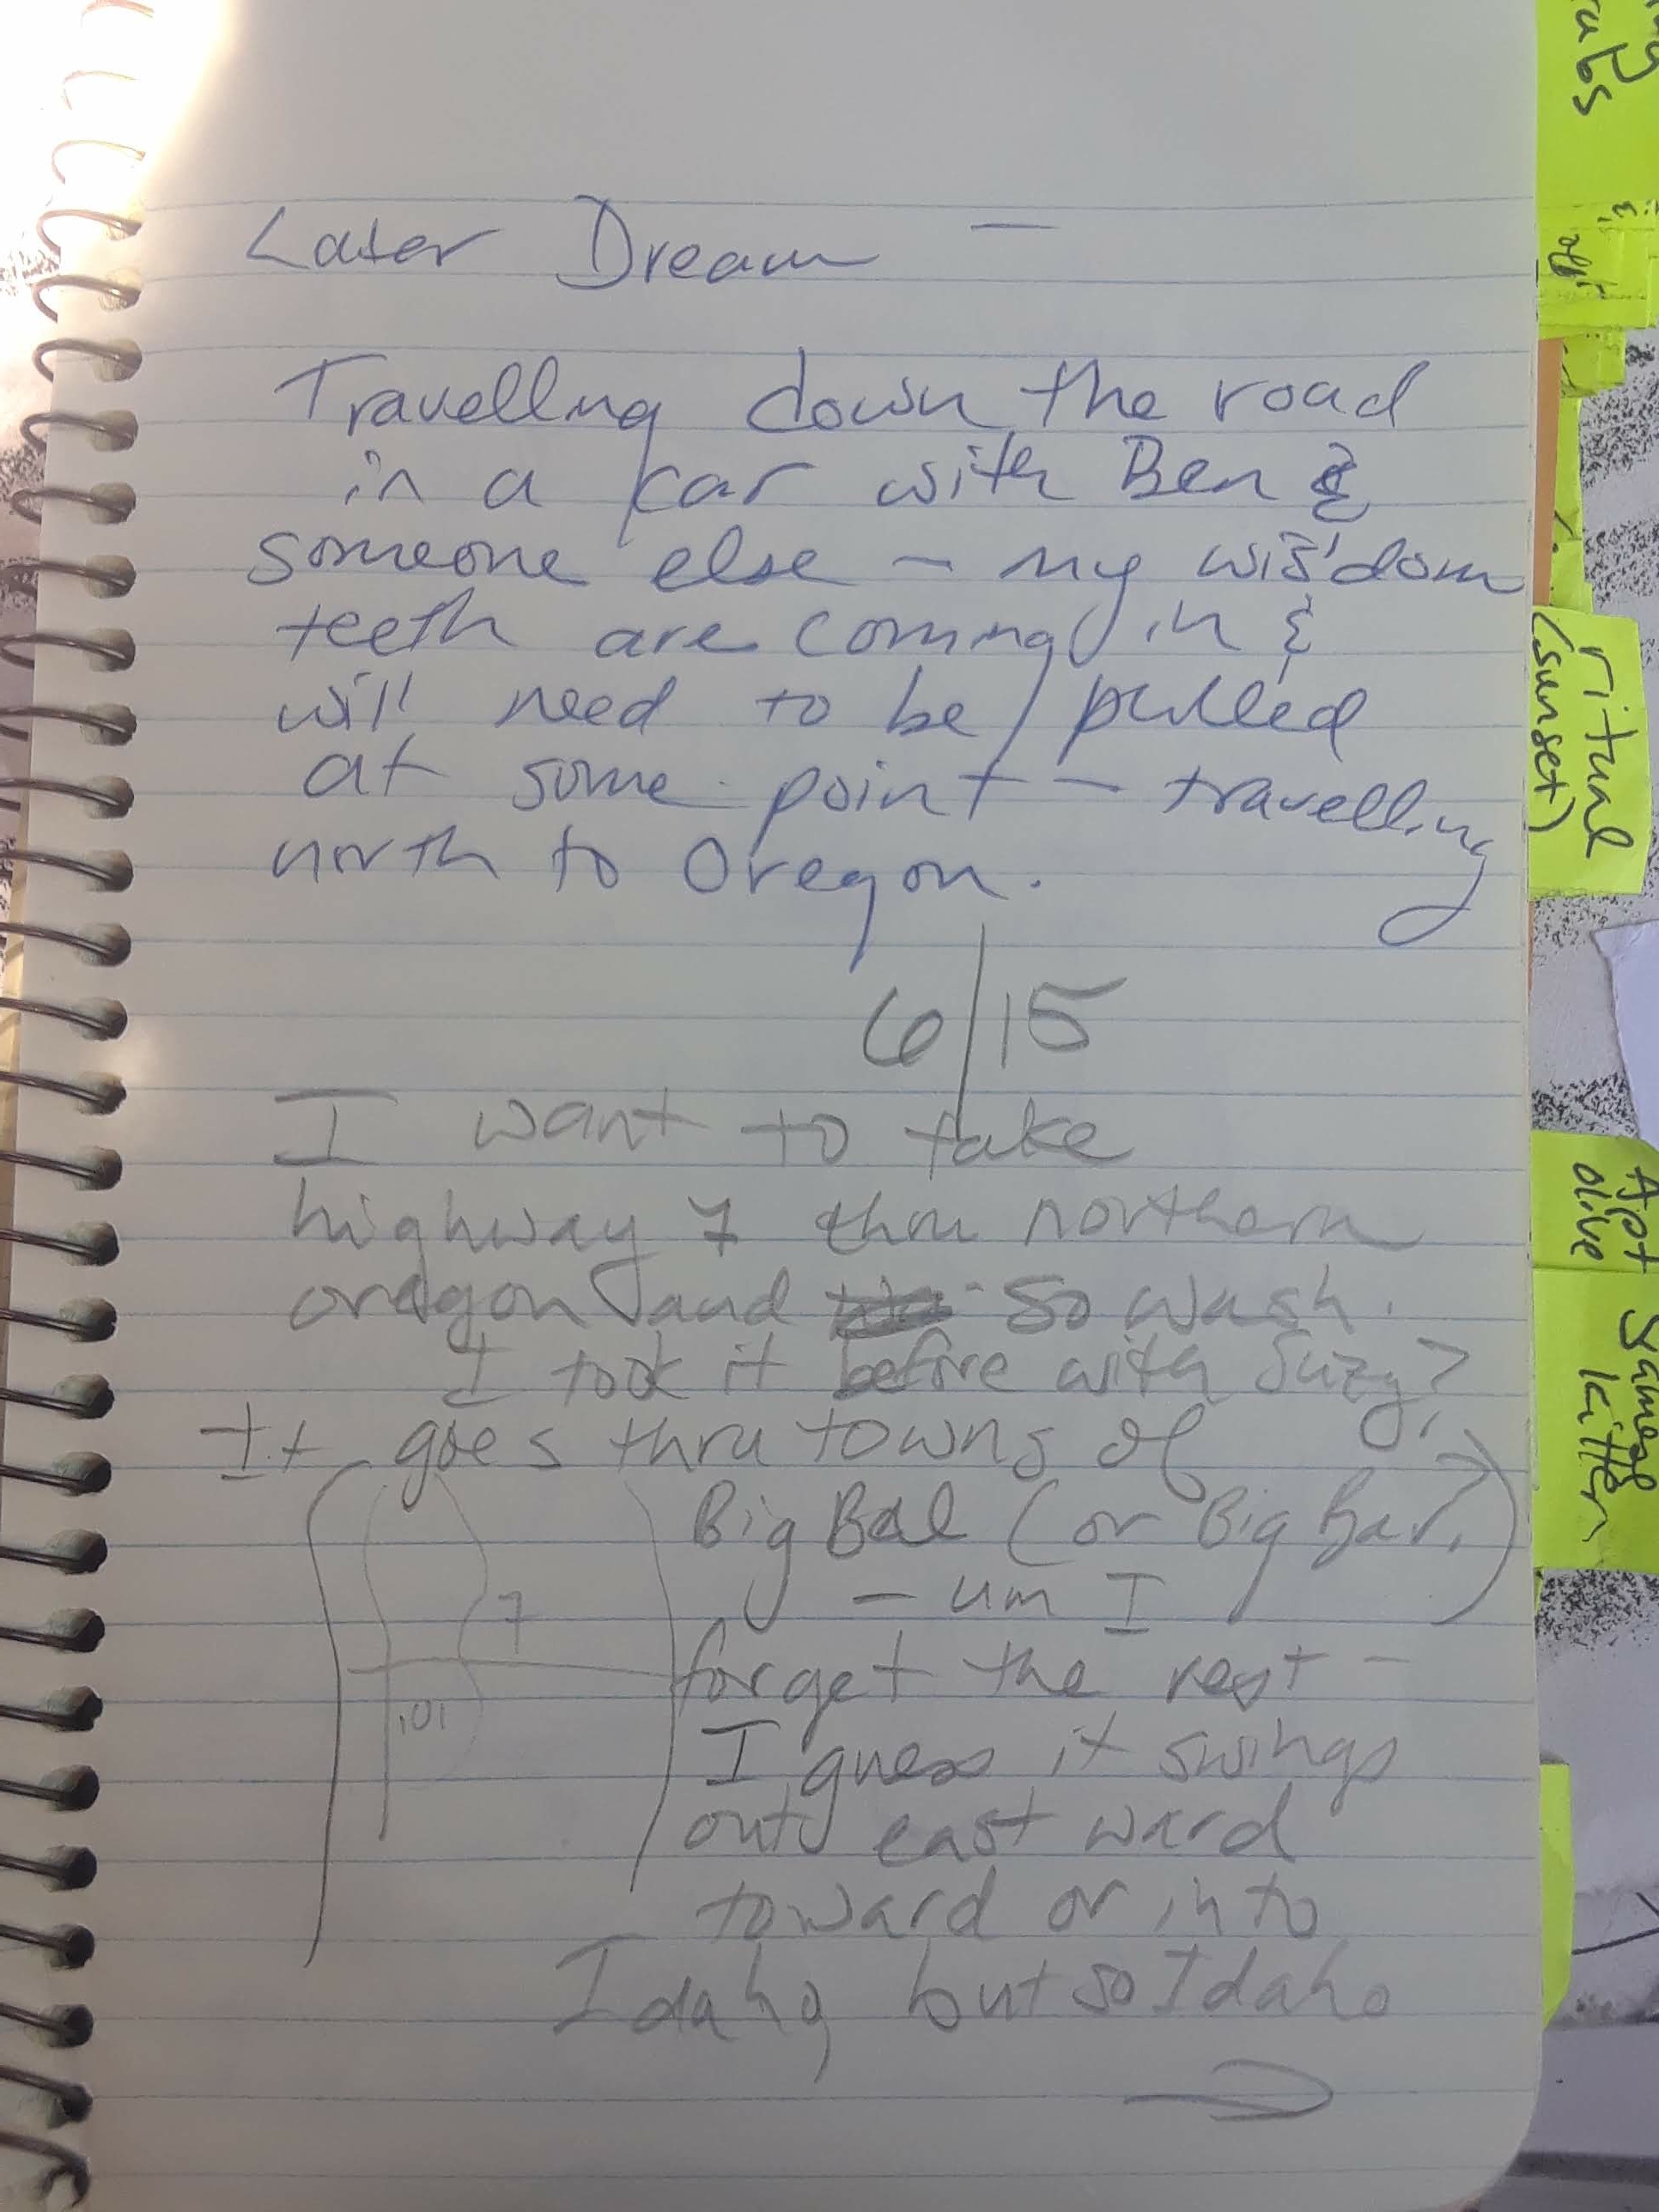 Later Dream —
Travelling down the road
in a car with Ben &
someone else - my wisdom
teeth are coming in &
will need to be pulled
at some point - travelling
north to Oregon.
6/15
I want to take
highway 7 thru northern
oregon and so wash.
I took it before with Suzy?
It goes thru towns of
Big Bal (or Big Bar,)
- um I
forget the rest -
I guess it swings
out east ward
toward or into
Idaho, but so Idaho
7
101
ritual
(sunset)
Apt
olive
kitten